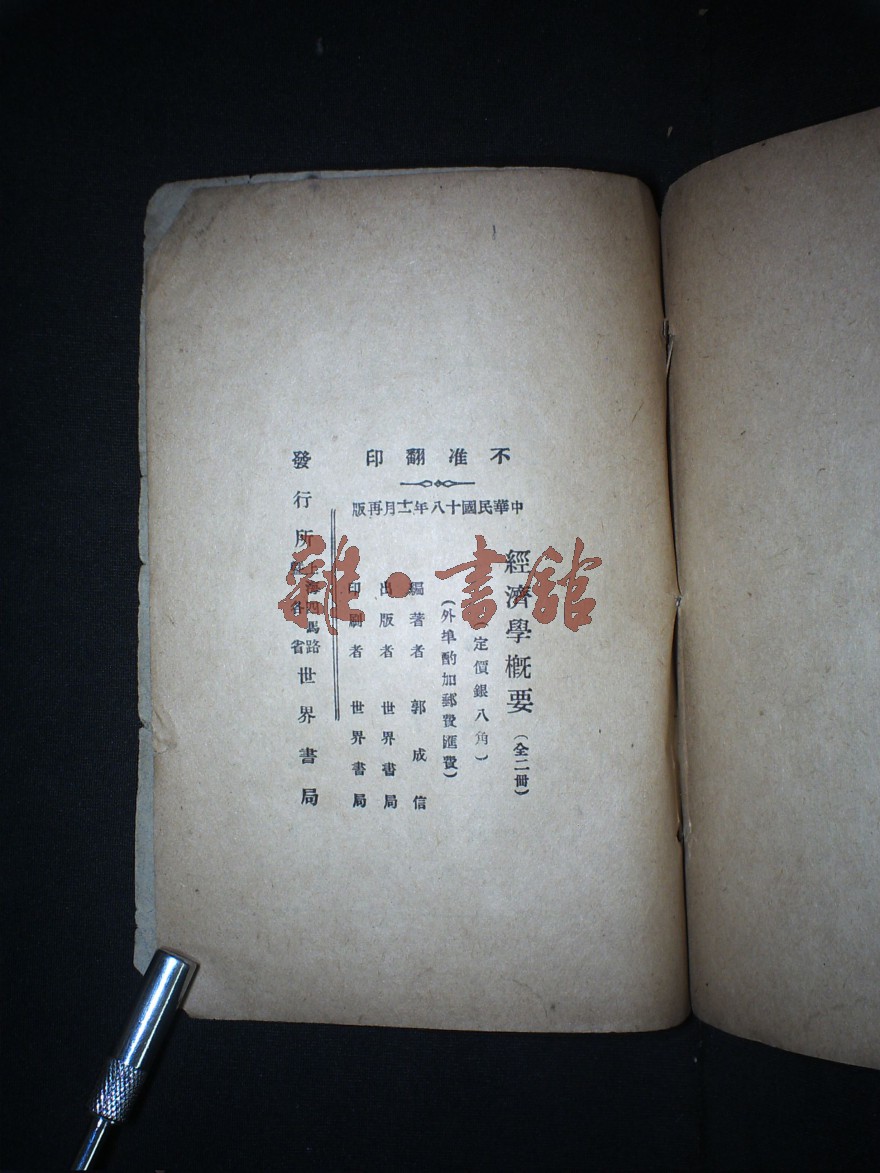 不准翻印
中華民國十八年十二月再版
經濟學槪要（全二冊）
（定價銀八角）
（外埠酌加郵費匯費）
編著者 郭成信
出版者 世界書局
印刷者 世界書局
發行所 上海四馬路 暨各省 世界書局
雜·書館